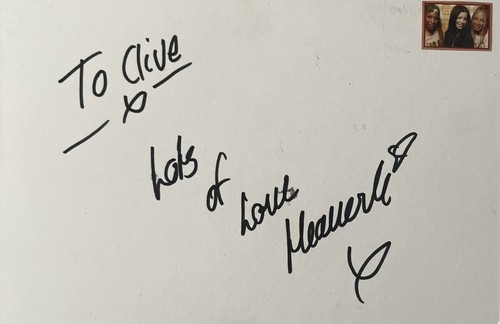 To Clive
x
Lots of Love Heavenli
x